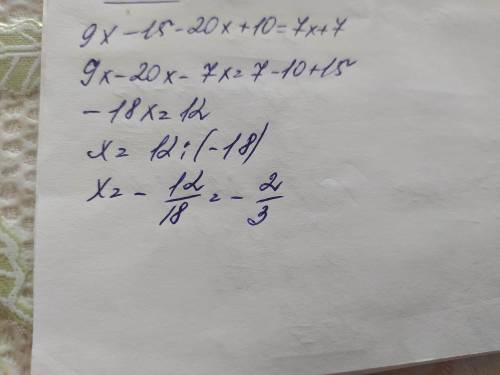 9x-15-20x+10=7x+7
9x-20x-7x=7-10+15
-18x=12
x=12:(-18)
x=-12/18=-2/3